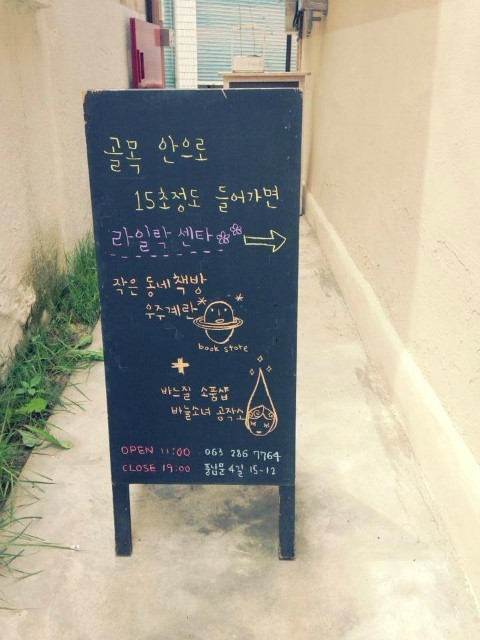 골목 안으로
15초정도 들어가면
라일락 센타
작은 동네 책방
우주계란
book store
+
바느질 소품샵
바늘소녀 공작소
OPEN 11:00 063 286 7764
CLOSE 19:00 풍남문 4길 15-12